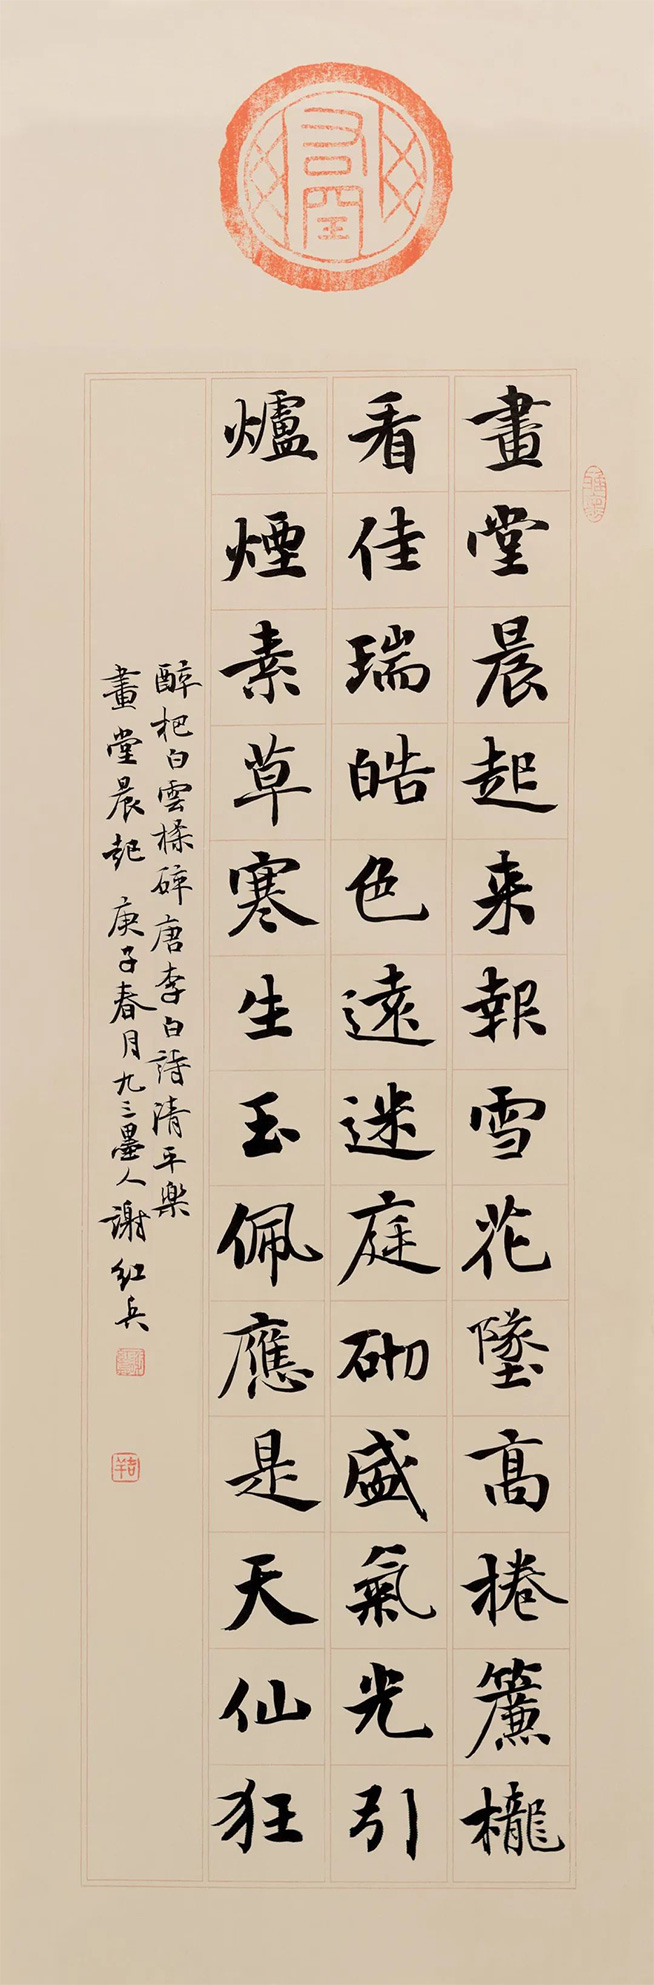 畫堂晨起来報雪花墜高捲簾櫳
看佳瑞皓色遠迷庭砌盛氣光引
爐煙素草寒生玉佩應是天仙狂
醉把白雲揉碎唐李白詩清平樂
畫堂晨起庚子春月九三墨人謝紅兵
吉羊